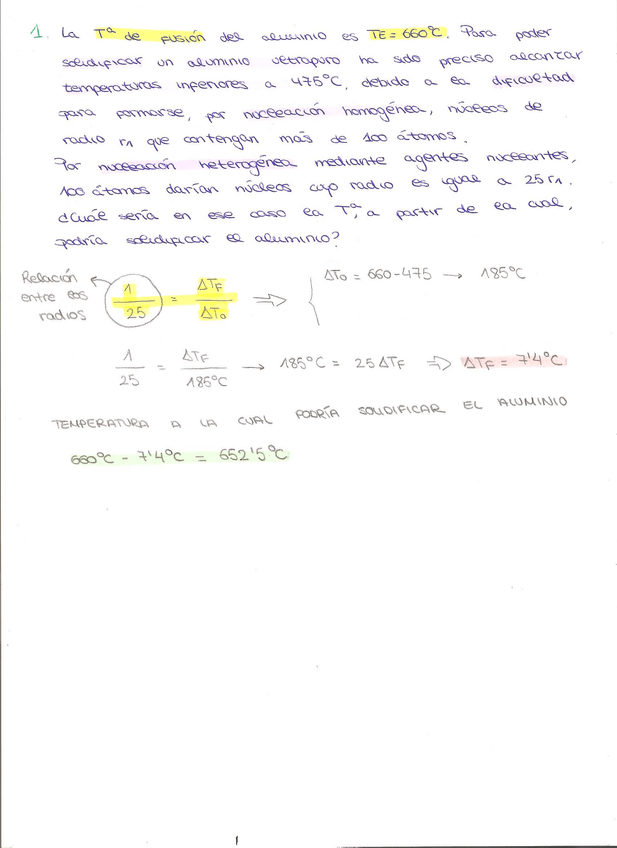 1. La Tª de fusión del aluminio es TE = 660ºC. Para poder
solidificar un aluminio ultrapuro ha sido preciso alcanzar
temperaturas inferiores a 475ºC, debido a la dificultad
para formarse, por nucleación homogénea, núcleos de
radio r1 que contengan más de 100 átomos.
Por nucleación heterogénea mediante agentes nucleantes,
100 átomos darían núcleos cuyo radio es igual a 25 r1.
¿Cuál sería en ese caso la Tª, a partir de la cual,
podría solidificar el aluminio?
Relación entre los radios
1/25 = ΔTF/ΔT0 ⇒ { ΔT0 = 660-475 → 185ºC
1/25 = ΔTF/185ºC → 185ºC = 25ΔTF ⇒ ΔTF = 7'4ºC
TEMPERATURA A LA CUAL PODRÍA SOLIDIFICAR EL ALUMINIO
660ºC - 7'4ºC = 652'5ºC
1